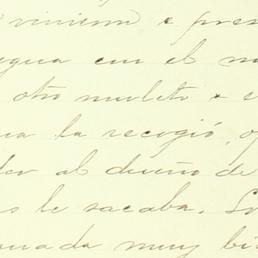 vivienn e pres
egua con el m
otro muleto
ua la recogió,
der al dueño de
s le sacaba.
uada muy bi